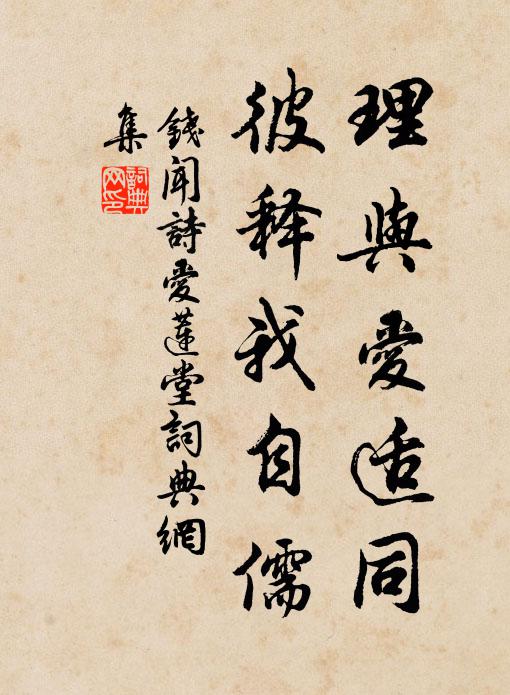 理與愛适同
彼释我自儒
錢聞詩愛蓮堂詞典網
集
詞典
网印